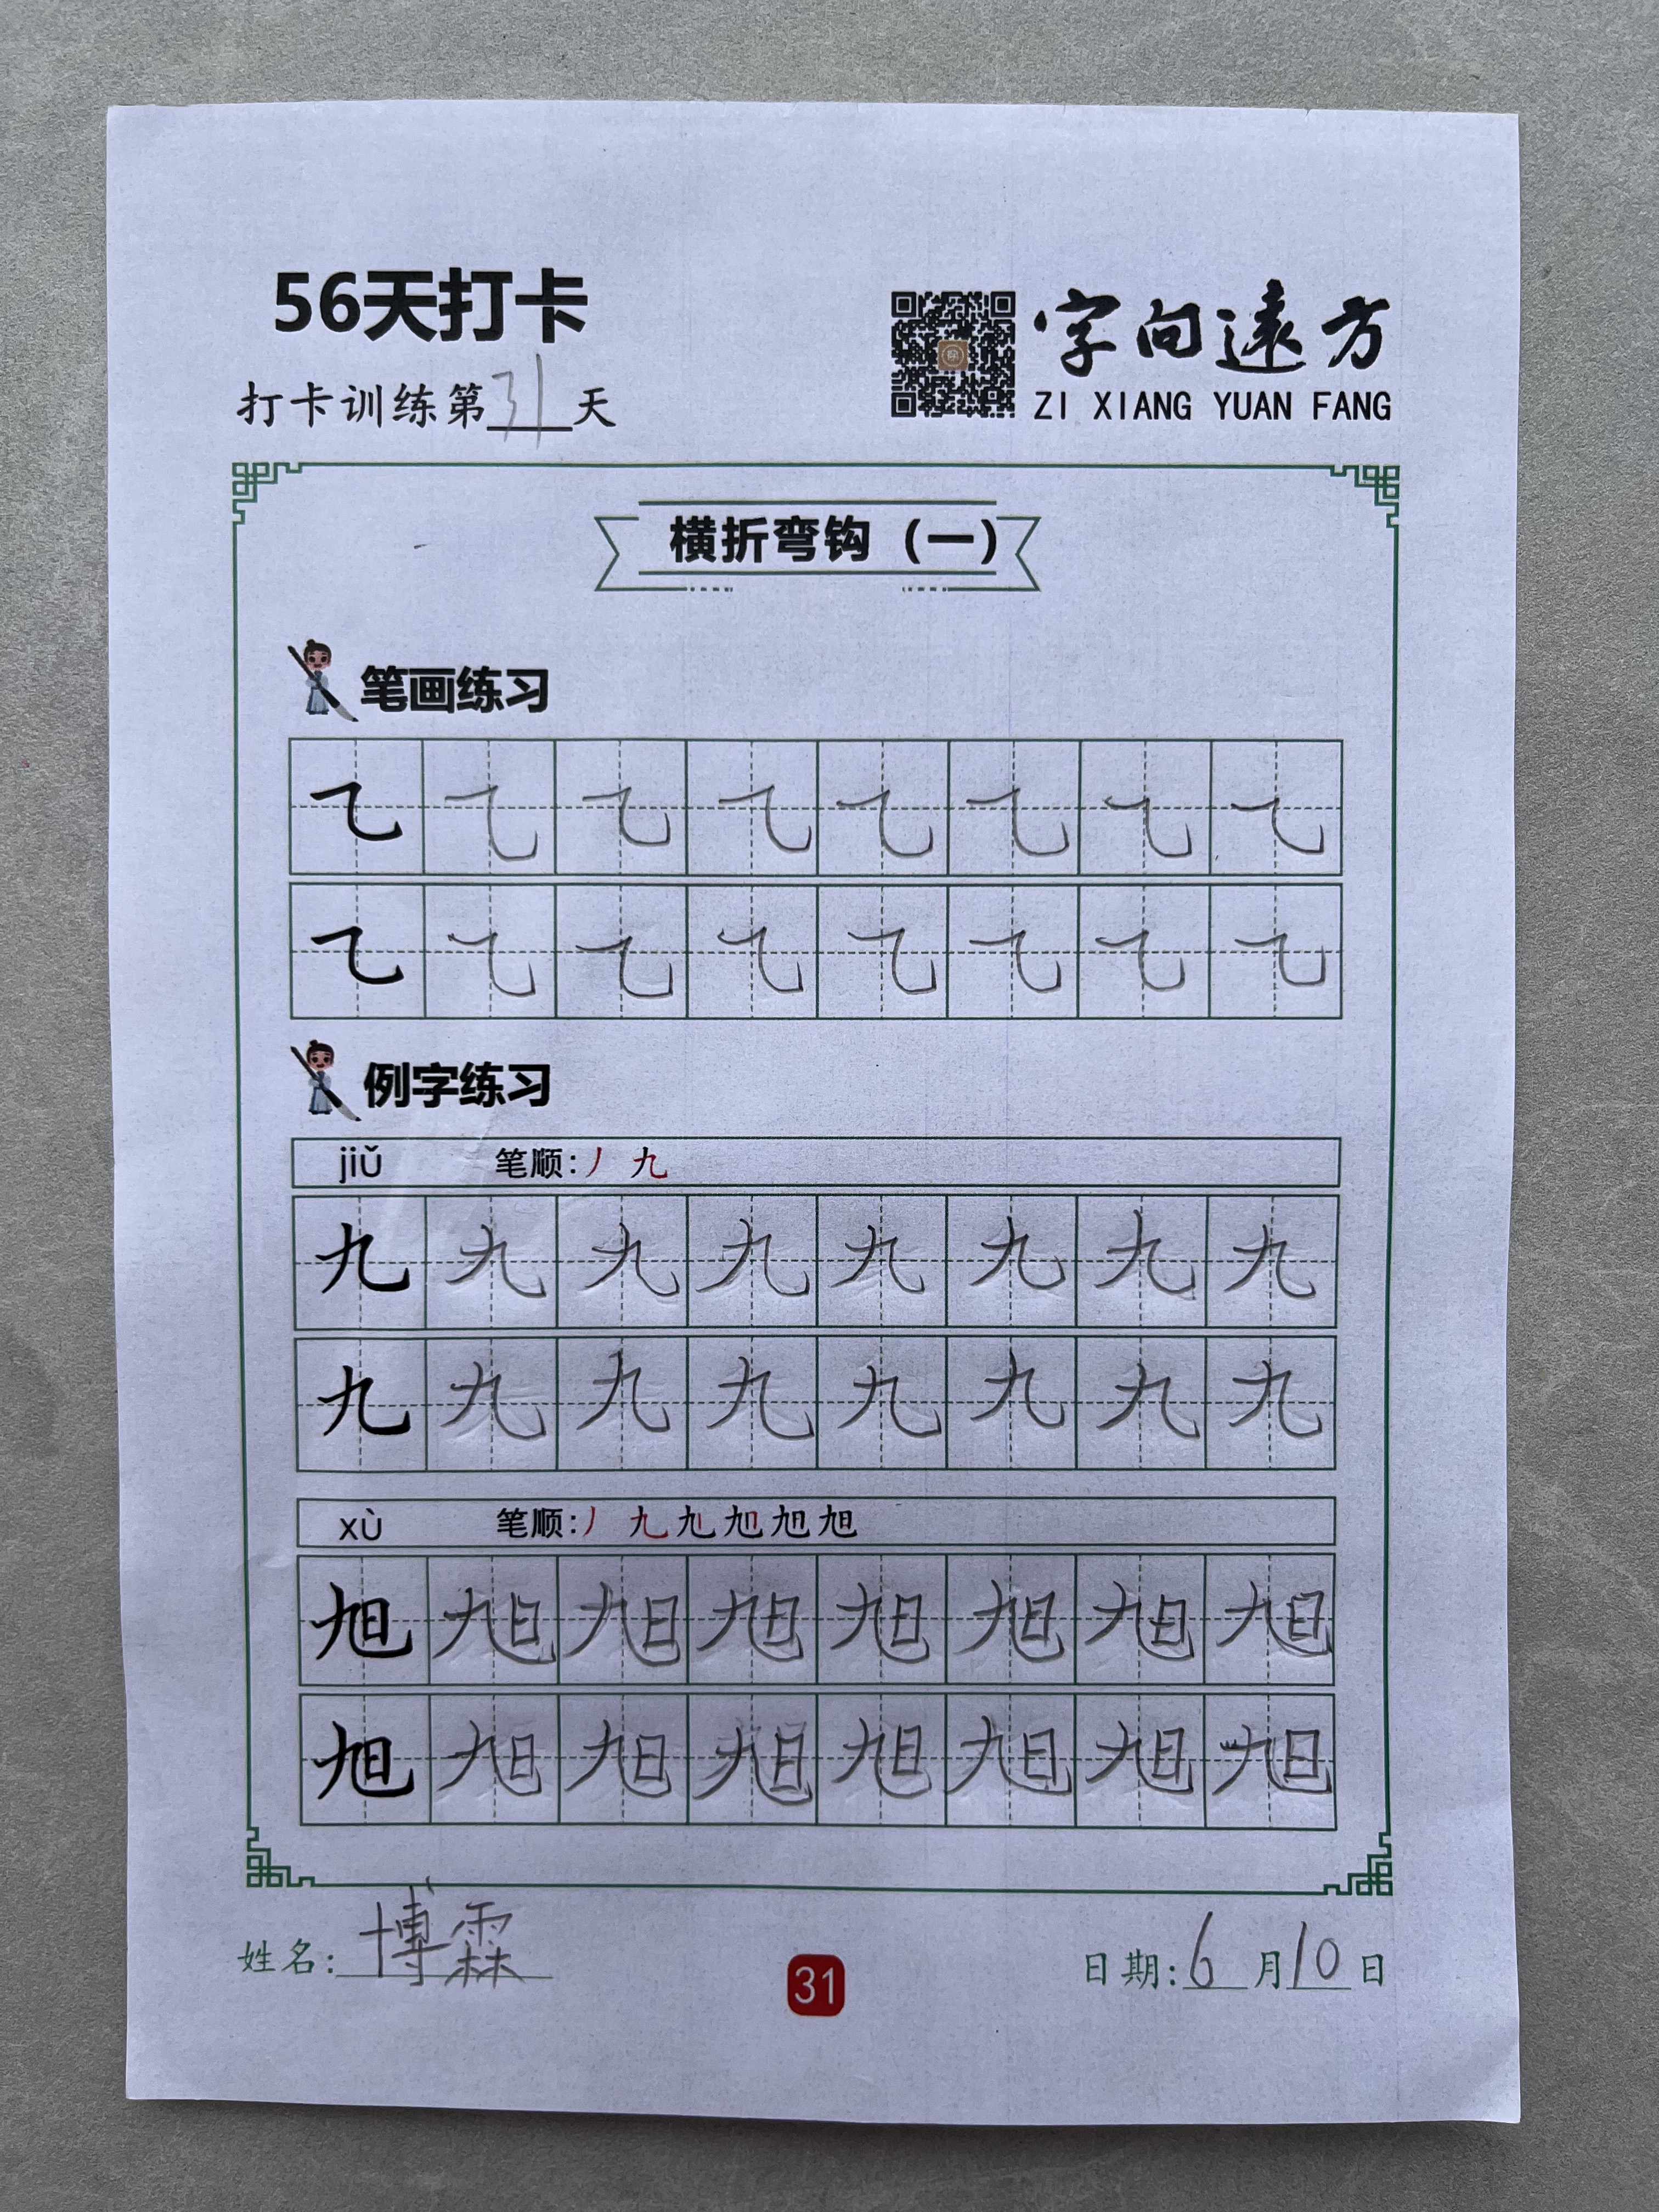 56天打卡
打卡训练第31天
字向遠方
ZI XIANG YUAN FANG
横折弯钩（一）
笔画练习
乁 乁 乁 乁 乁 乁 乁 乁
乁 乁 乁 乁 乁 乁 乁 乁
例字练习
jiǔ 笔顺：丿 九
九 九 九 九 九 九 九 九
九 九 九 九 九 九 九 九
xù 笔顺：丿 九 九 旭 旭 旭
旭 旭 旭 旭 旭 旭 旭 旭
旭 旭 旭 旭 旭 旭 旭 旭
姓名：博霖
31
日期：6月10日